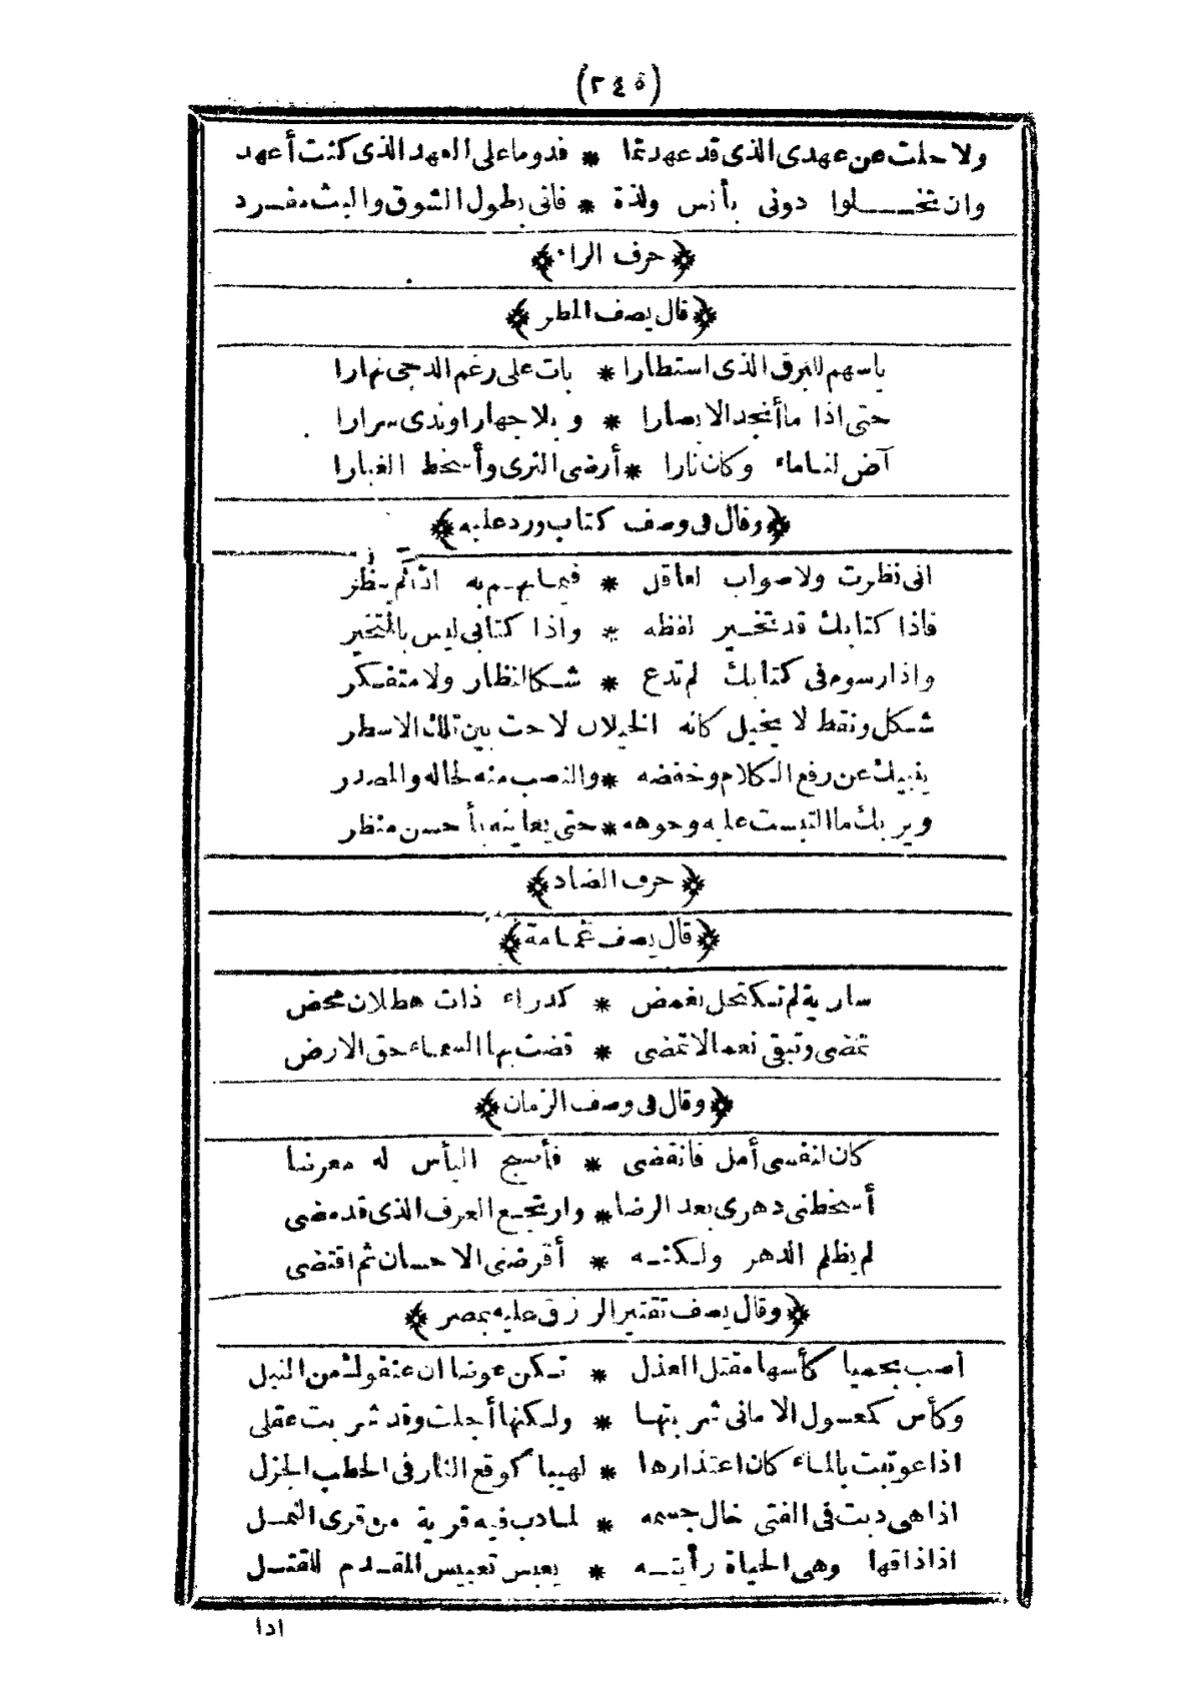 (٢٤٥)
ولا حلت عن عهدى الذى قد عهدتما * فدوما على العهد الذى كنت أعهد
وان تخـــلوا دونى بأنس ولذة * فانى بطول الشوق والبث مفرد
﴿حرف الراء﴾
﴿قال يصف المطر﴾
ياسهم للبرق الذى استطارا * بات على رغم الدجى نهارا
حتى اذا ما أنجد الابصارا * وبلا جهارا وندى سرارا
آض لنا ماء وكان نارا * أرضى الثرى وأسخط الغبارا
﴿وقال فى وصف كتاب ورد عليه﴾
انى نظرت ولا صواب لعاقل * فيما يهم به اذا لم ينظر
فاذا كتابك قد تخير لفظه * واذا كتابى ليس بالمتخير
واذا رسوم فى كتابك لم تدع * شكا لنظار ولا متفكر
شكل ونقط لا يخيل كانه الخيلان لاحت بين تلك الاسطر
ينبيك عن رفع الكلام وخفضه * والنصب منه لحاله والمصدر
ويريك ما التبست عليه وجوهه * حتى يعاينه بأحسن منظر
﴿حرف الضاد﴾
﴿قال يصف غمامة﴾
سارية لم تكتحل بغمض * كدراء ذات هطلان محض
تمضى وتبقى نعما لا تمضى * قضت بها السماء حق الارض
﴿وقال فى وصف الزمان﴾
كان لنفسى أمل فانقضى * فأصبح اليأس له معرضا
أسخطنى دهرى بعد الرضا * وارتجع العرف الذى قد مضى
لم يظلم الدهر ولكنه * أقرضنى الاحسان ثم اقتضى
﴿وقال يصف تقتير الرزق عليه بمصر﴾
اصب بحميا كأسها مقتل العذل * تكن عوضا ان عنفوك من النبل
وكأس كمعسول الامانى شربتها * ولكنها أجلت وقد شربت عقلى
اذا عوتبت بالماء كان اعتذارها * لهيبا كوقع النار فى الحطب الجزل
اذا هى دبت فى الفتى خال جسمه * لما دب فيه قرية من قرى النمل
اذا ذاقها وهى الحياة رأيته * يعبس تعبيس المقدم للقتل
اذا